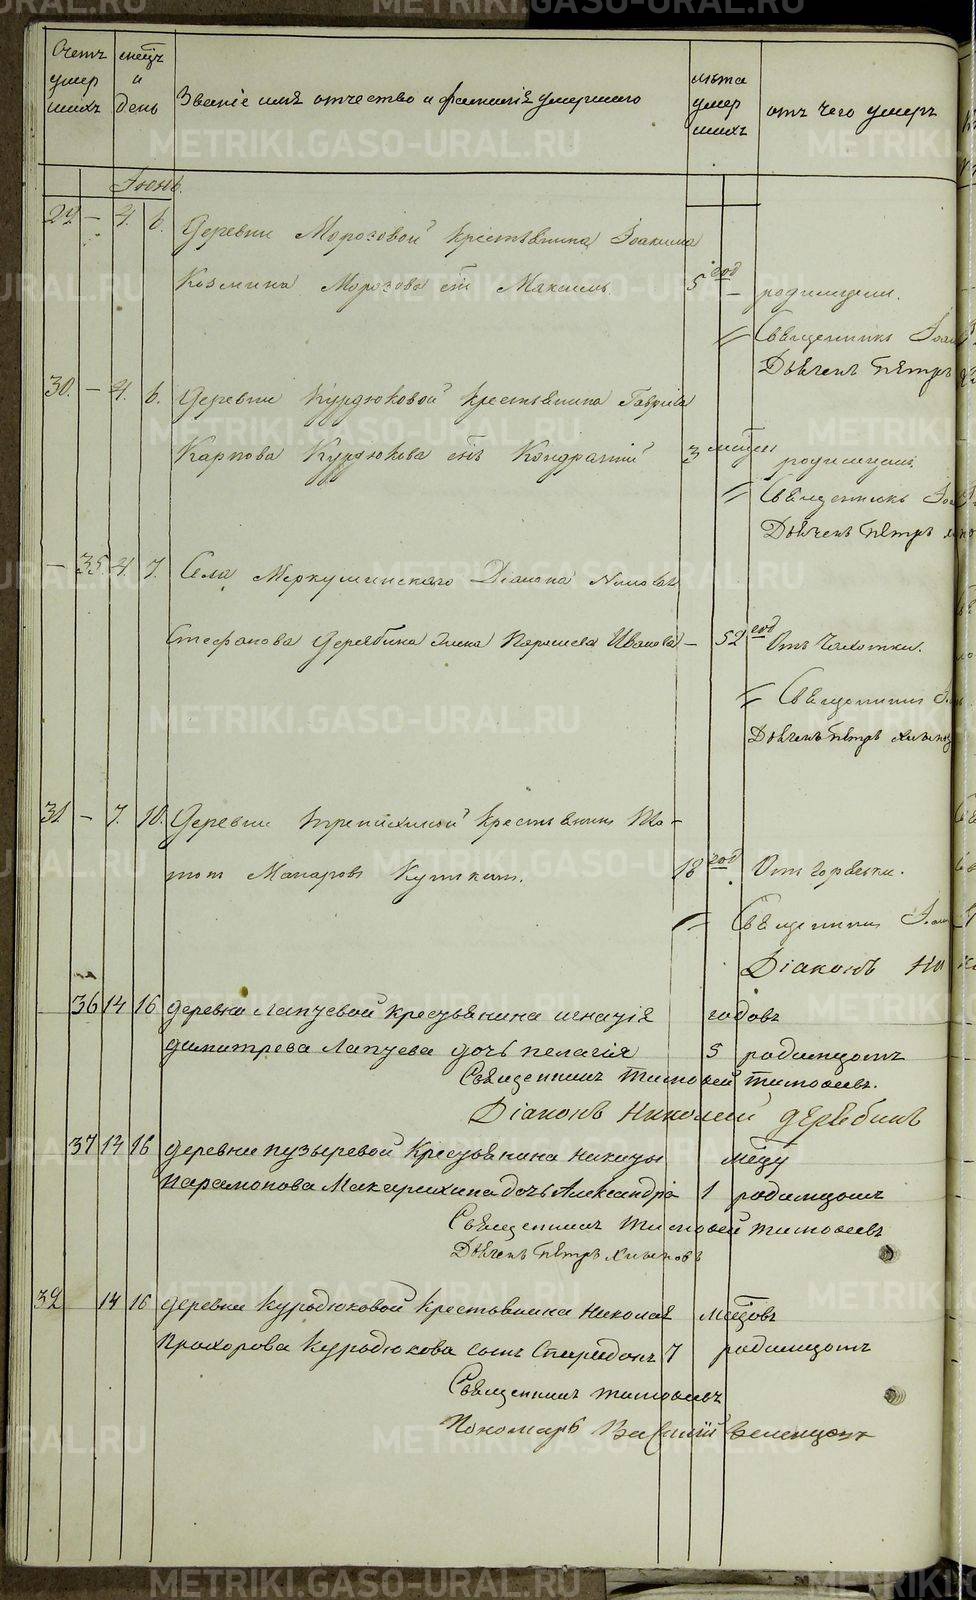 Счетъ умер шихъ
мѣсцъ и день
Званіе имя отчество и фамилія умершаго
лѣта умер шихъ
отъ чего умеръ
Іюнь.
29. – 4. 6. Деревни Морозовой крестьянина Іоакима
Козмина Морозова сынъ Максимъ. 5 год – родимцем.
Священникъ Іоан
Дьячекъ Пётръ
30. – 4. 6. Деревни Курдюковой крестьянина Гавріила
Карпова Курдюкова сынъ Кондратій 3 мѣсяц родимцемъ
Священникъ Іоан
Дьячекъ Пётръ
– 35 4. 7. Села Меркушинскаго Діакона Николая
Стефанова Дерябина жена Параскева Иванова – 52 год Отъ Чахотки.
Священникъ
Дьячекъ Пётръ Хлыновъ
31. – 7. 10. Деревни крестьянин
Макаровъ 18 год Отъ горячки.
Священникъ Іоан
Діаконъ Ни
36 14 16 деревни Лапуевой крестьянина игнатія годовъ
димитрева Лапуева дочь пелагія 5 родимцомъ
Священникъ Тимофей Тимофеевъ.
Діаконъ Николай дерябинъ
37 14 16 деревни пузыревой крестьянина никиты
парамонова Макарихина дочь Александра 1 родимцомъ
Священникъ Тимофей Тимофеевъ
Дьячекъ Пётръ Хлыновъ
32 14 16 деревни курдюковой крестьянина николая мѣсяцовъ
Прохорова Курдюкова сынъ Спиридонъ 7 родимцомъ
Священникъ Тимофеевъ
Пономарь Василій
METRIKI.GASO-URAL.RU